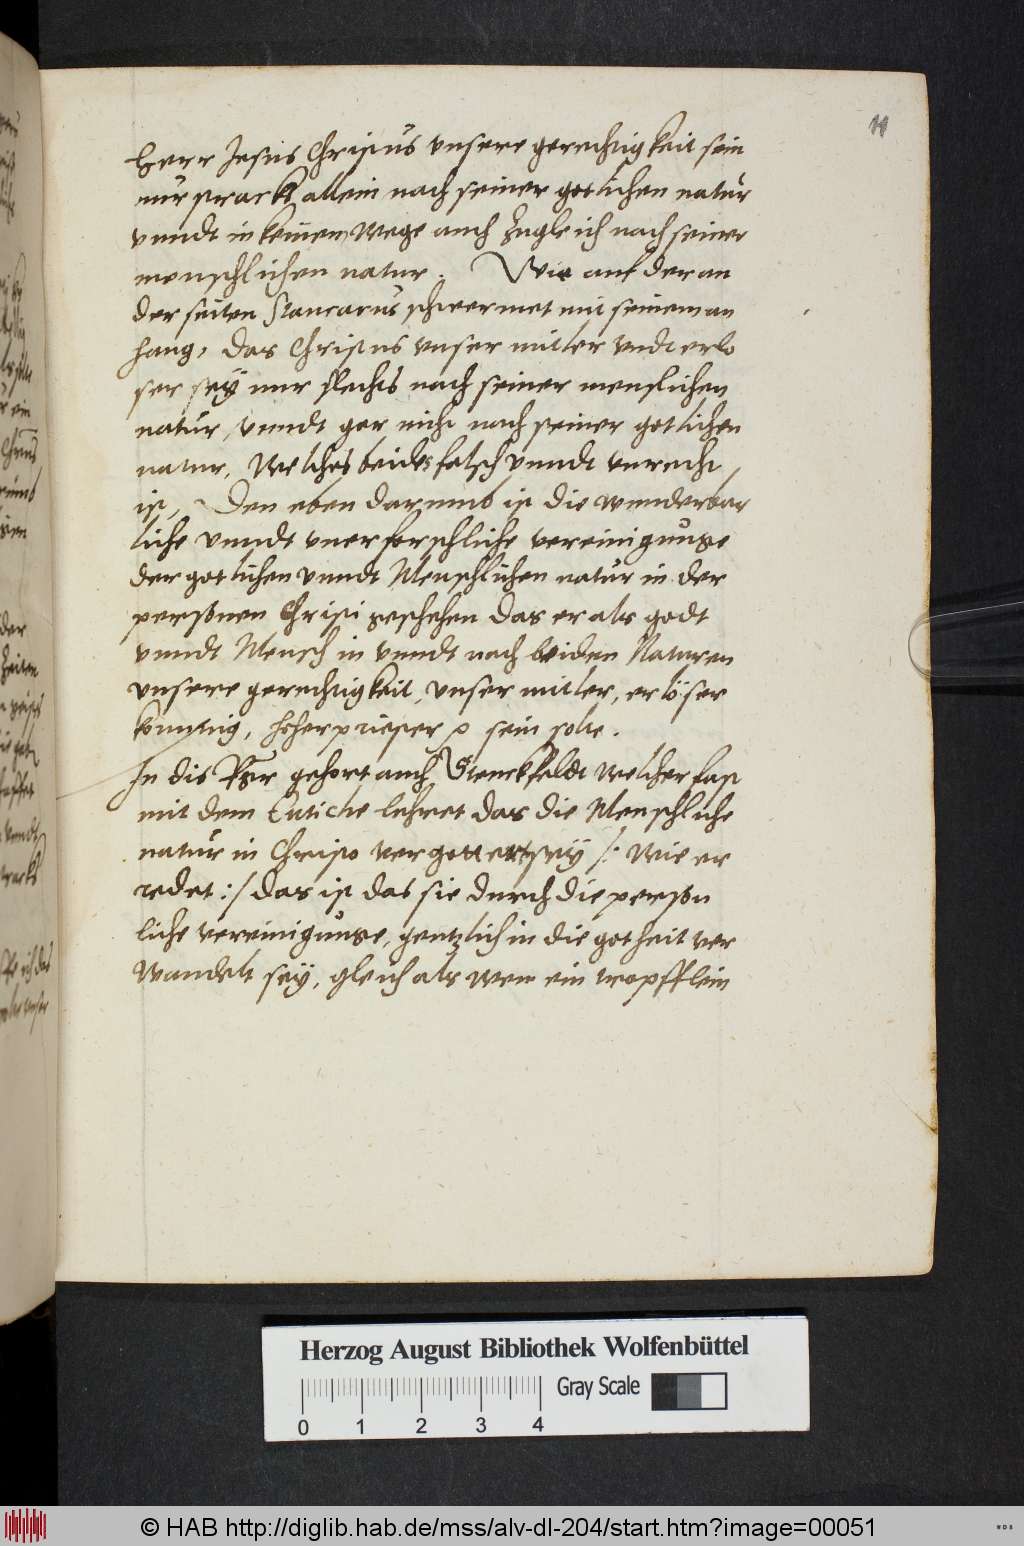 11
Herr Jesus Christus vnsere gerechtigkeit sein
nur strack allein nach seiner gotlichen natur
vnndt in keinem Wege auch zugleich nach seiner
menschlichen natur. Wie auf der an
der seiten Stancarus schwermet mit seinem an
hang, das Christus vnser mitler vndt erlo
ser seÿ nur slechts nach seiner menslichen
natur, vnndt gar nicht nach seiner gotlichen
natur, Welches beides falsch vnndt vnrecht
ist, Den eben darumb ist die wunderbar
liche vnndt vnerforschliche vereinigunge
der gotlichen vnndt Menschlichen natur in der
personen Christi geschehen das er als godt
vnndt Mensch in vnndt nach beiden Naturen
vnsere gerechtigkeit, vnser mitler, erlöser
konning, hoherpriester sein solte.
In dis gehort auch Stenckfeldt Welcher fast
mit dem Eutiche lehret das die Menschliche
natur in Christo vergottert seÿ /: Wie er
redet :/ das ist das sie durch die person
liche vereinigunge, gentzlich in die gotheit ver
Wandelt seÿ, gleich als wen ein tropfflein
Herzog August Bibliothek Wolfenbüttel
Gray Scale
0 1 2 3 4
© HAB http://diglib.hab.de/mss/alv-dl-204/start.htm?image=00051